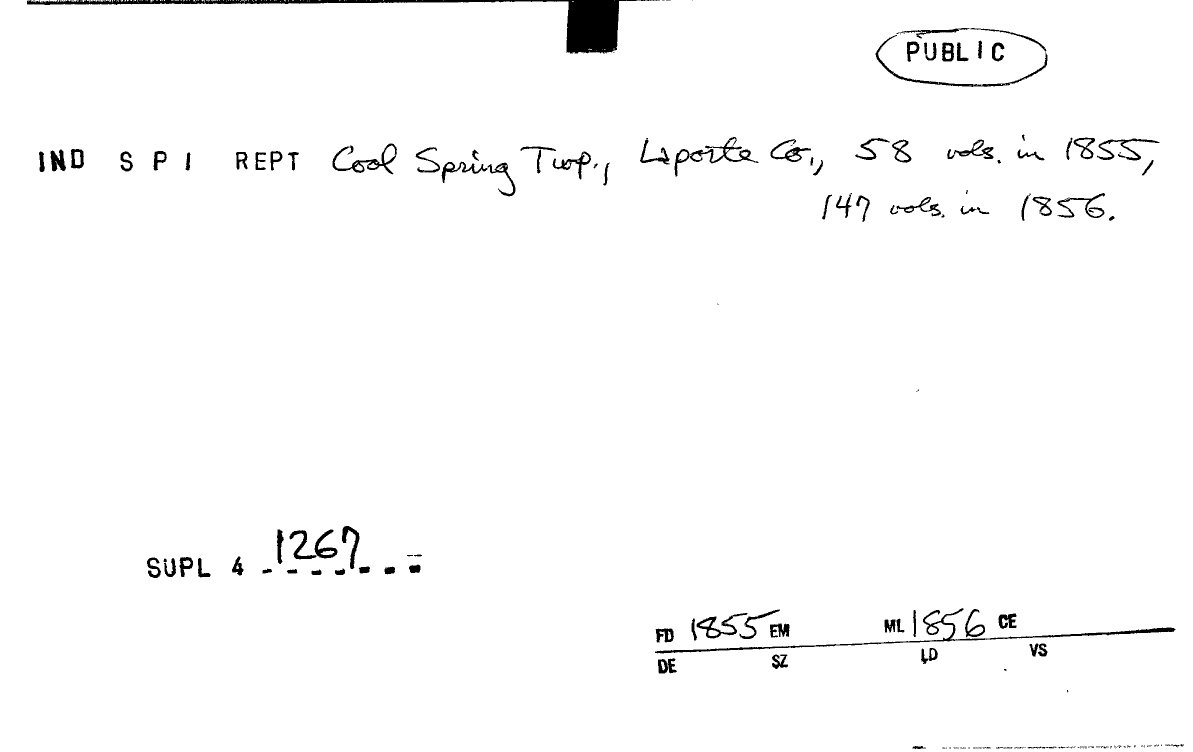 PUBLIC
IND S P I REPT Cool Spring Twp., Laporte Co., 58 vols. in 1855,
147 vols. in 1856.
SUPL 4 1267
FD 1855 EM ML 1856 CE
DE SZ LD VS